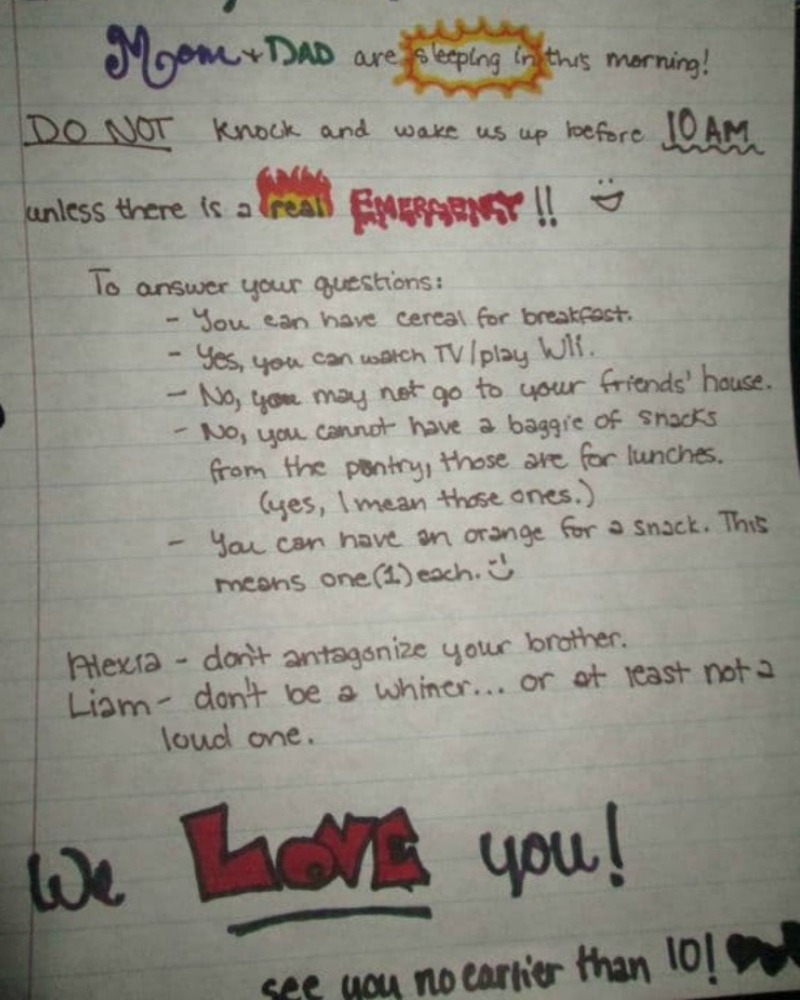 Mom + DAD are sleeping in this morning!
DO NOT knock and wake us up before 10 AM
unless there is a real EMERGENCY!!
To answer your questions:
- You can have cereal for breakfast.
- Yes, you can watch TV/play Wii.
- No, you may not go to your friends' house.
- No, you cannot have a baggie of snacks
from the pantry, those are for lunches.
(yes, I mean those ones.)
- You can have an orange for a snack. This
means one (1) each.
Alexia - don't antagonize your brother.
Liam - don't be a whiner... or at least not a
loud one.
We LOVE you!
see you no earlier than 10!